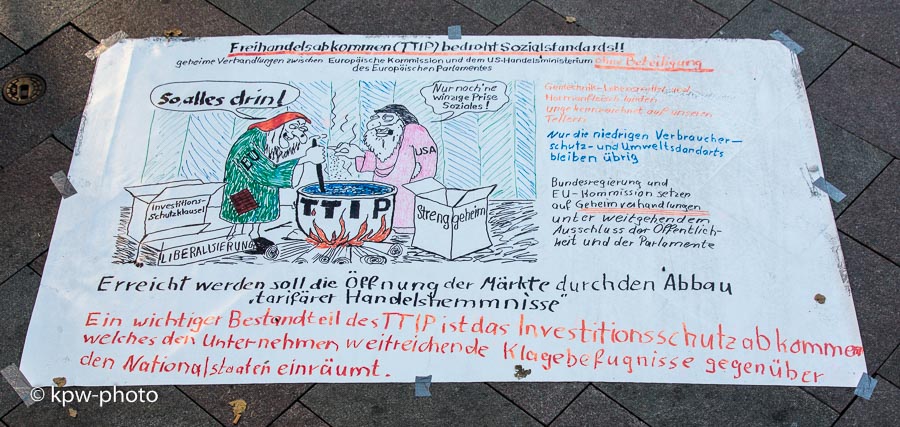 Freihandelsabkommen (TTIP) bedroht Sozialstandards!!
geheime Verhandlungen zwischen Europäische Kommission und dem US-Handelsministerium ohne Beteiligung
des Europäischen Parlamentes
So, alles drin!
Nur noch 'ne
winzige Prise
Soziales!
EU
USA
TTIP
Investitions-
Schutzklausel
LIBERALISIERUNG
Streng geheim
Gentechnik-Lebensmittel und
Hormonfleisch landen
ungekennzeichnet auf unseren
Tellern
Nur die niedrigen Verbraucher-
schutz- und Umweltsdandarts
bleiben übrig
Bundesregierung und
EU-Kommission setzen
auf Geheimverhandlungen
unter weitgehendem
Ausschluss der Öffentlich-
keit und der Parlamente
Erreicht werden soll die Öffnung der Märkte durch den Abbau
"tarifärer Handelshemmnisse"
Ein wichtiger Bestandteil des TTIP ist das Investitionsschutzabkommen
welches den Unternehmen weitreichende Klagebefugnisse gegenüber
den Nationalstaaten einräumt.
© kpw-photo